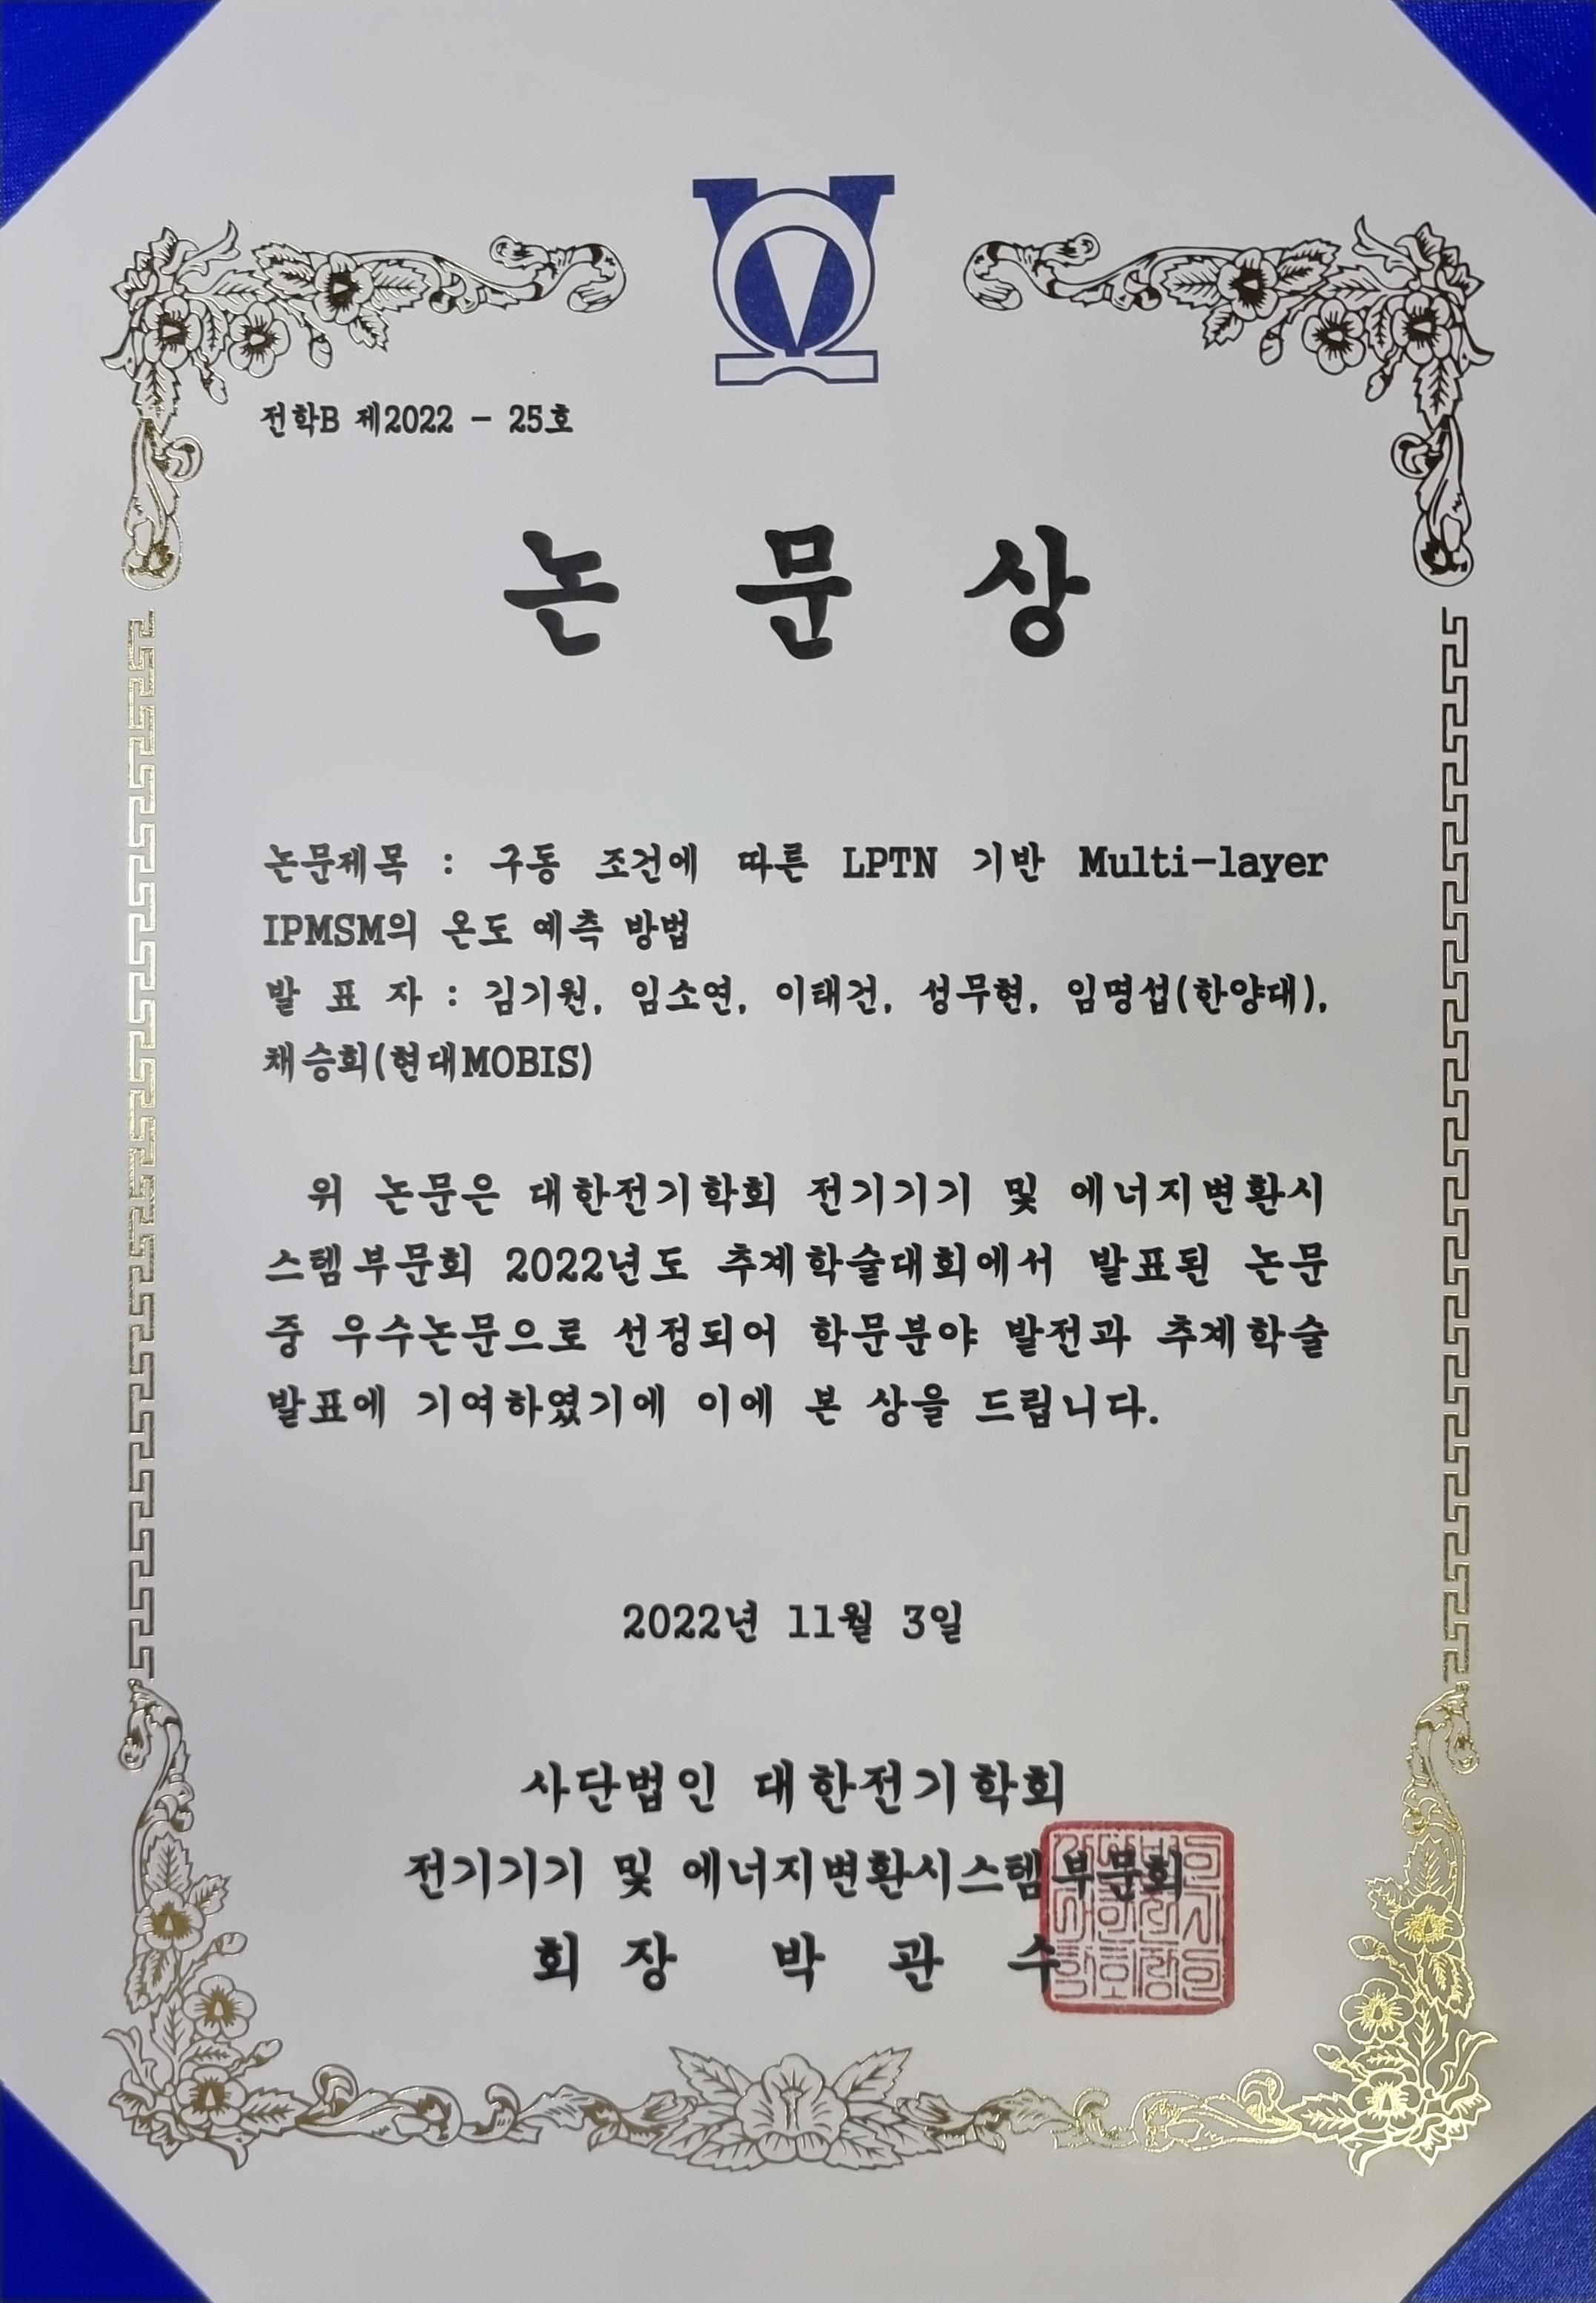 전학B 제2022 - 25호
논 문 상
논문제목 : 구동 조건에 따른 LPTN 기반 Multi-layer
IPMSM의 온도 예측 방법
발 표 자 : 김기원, 임소연, 이태건, 성무현, 임명섭(한양대),
채승희(현대MOBIS)
위 논문은 대한전기학회 전기기기 및 에너지변환시
스템부문회 2022년도 추계학술대회에서 발표된 논문
중 우수논문으로 선정되어 학문분야 발전과 추계학술
발표에 기여하였기에 이에 본 상을 드립니다.
2022년 11월 3일
사단법인 대한전기학회
전기기기 및 에너지변환시스템부문회
회 장 박 관 수